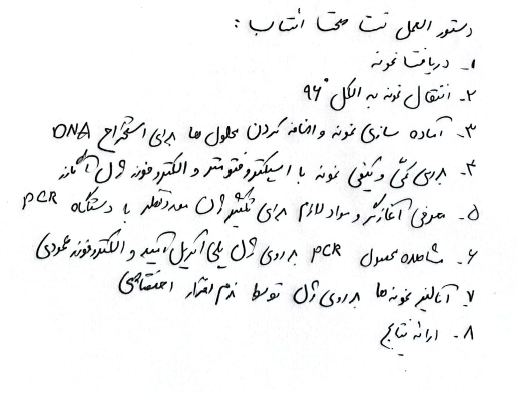 دستور العمل تست صحت انتساب :
۱- دریافت نمونه
۲- انتقال نمونه به الکل ۹۶°
۳- آماده سازی نمونه و اضافه کردن محلول ها برای استخراج DNA
۴- بررسی کمّی و کیفی نمونه با اسپکتروفتومتر و الکتروفورز ژل آگارز
۵- معرفی آغازگر و مواد لازم برای تکثیر ژن مورد نظر با دستگاه PCR
۶- مشاهده محصول PCR بر روی ژل پلی آکریل آمید و الکتروفورز عمودی
۷- آنالیز نمونه ها بر روی ژل توسط نرم افزار اختصاصی
۸- ارائه نتایج